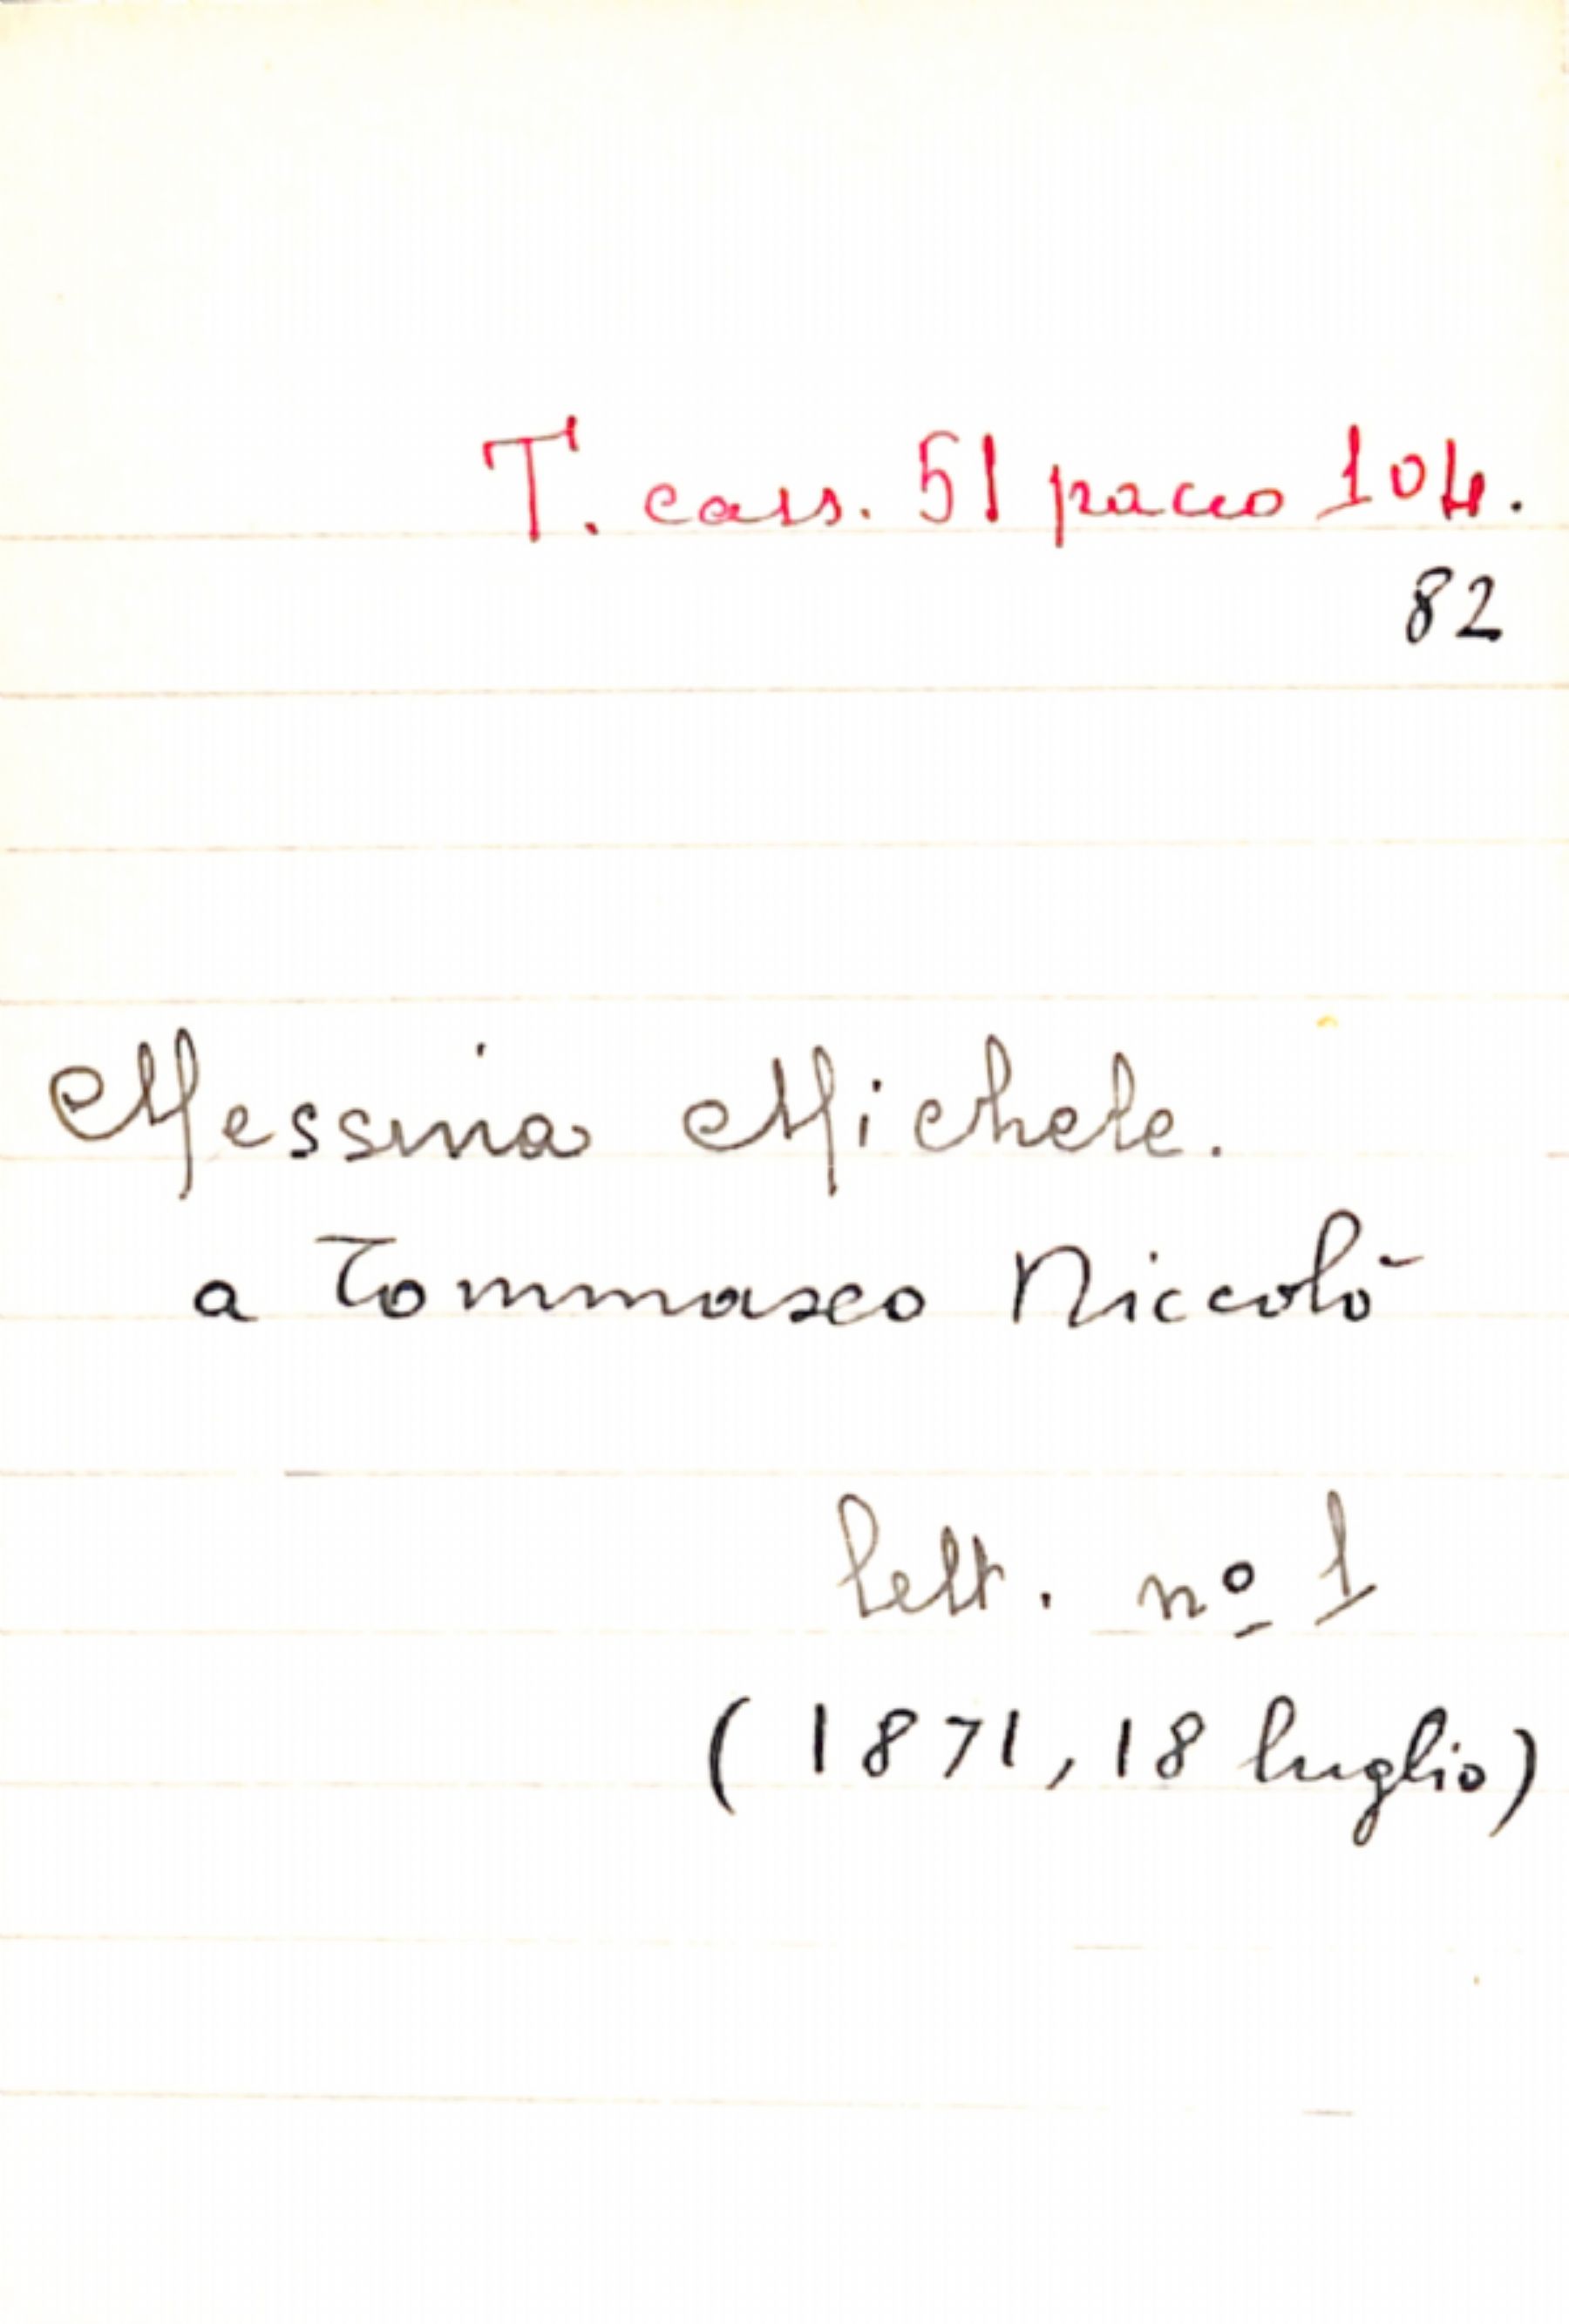 T. cass. 51 pacco 104.
82
Messina Michele.
a Tommaseo Niccolò
lett. nº 1
(1871, 18 luglio)